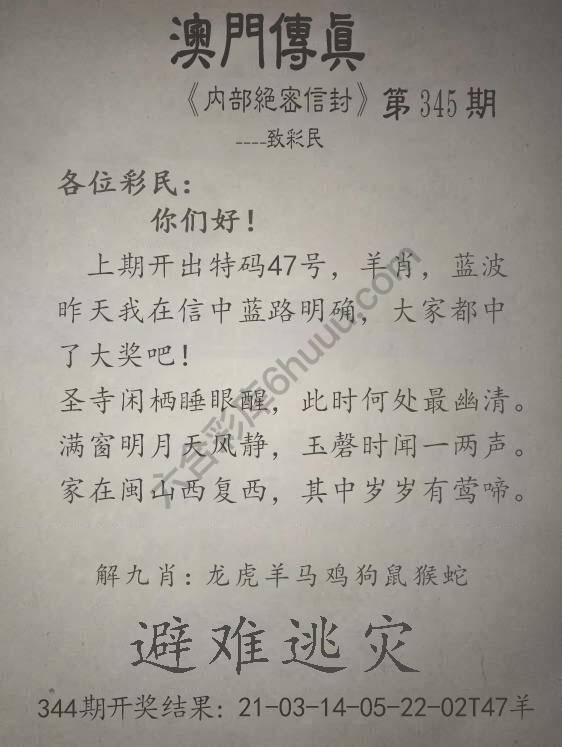 澳門傳眞
《内部絕密信封》第345期
----致彩民
各位彩民：
你们好！
上期开出特码47号，羊肖，蓝波
昨天我在信中蓝路明确，大家都中
了大奖吧！
圣寺闲栖睡眼醒，此时何处最幽清。
满窗明月天风静，玉磬时闻一两声。
家在闽山西复西，其中岁岁有莺啼。
六合彩库6huuu.com
解九肖：龙虎羊马鸡狗鼠猴蛇
避难逃灾
344期开奖结果：21-03-14-05-22-02T47羊